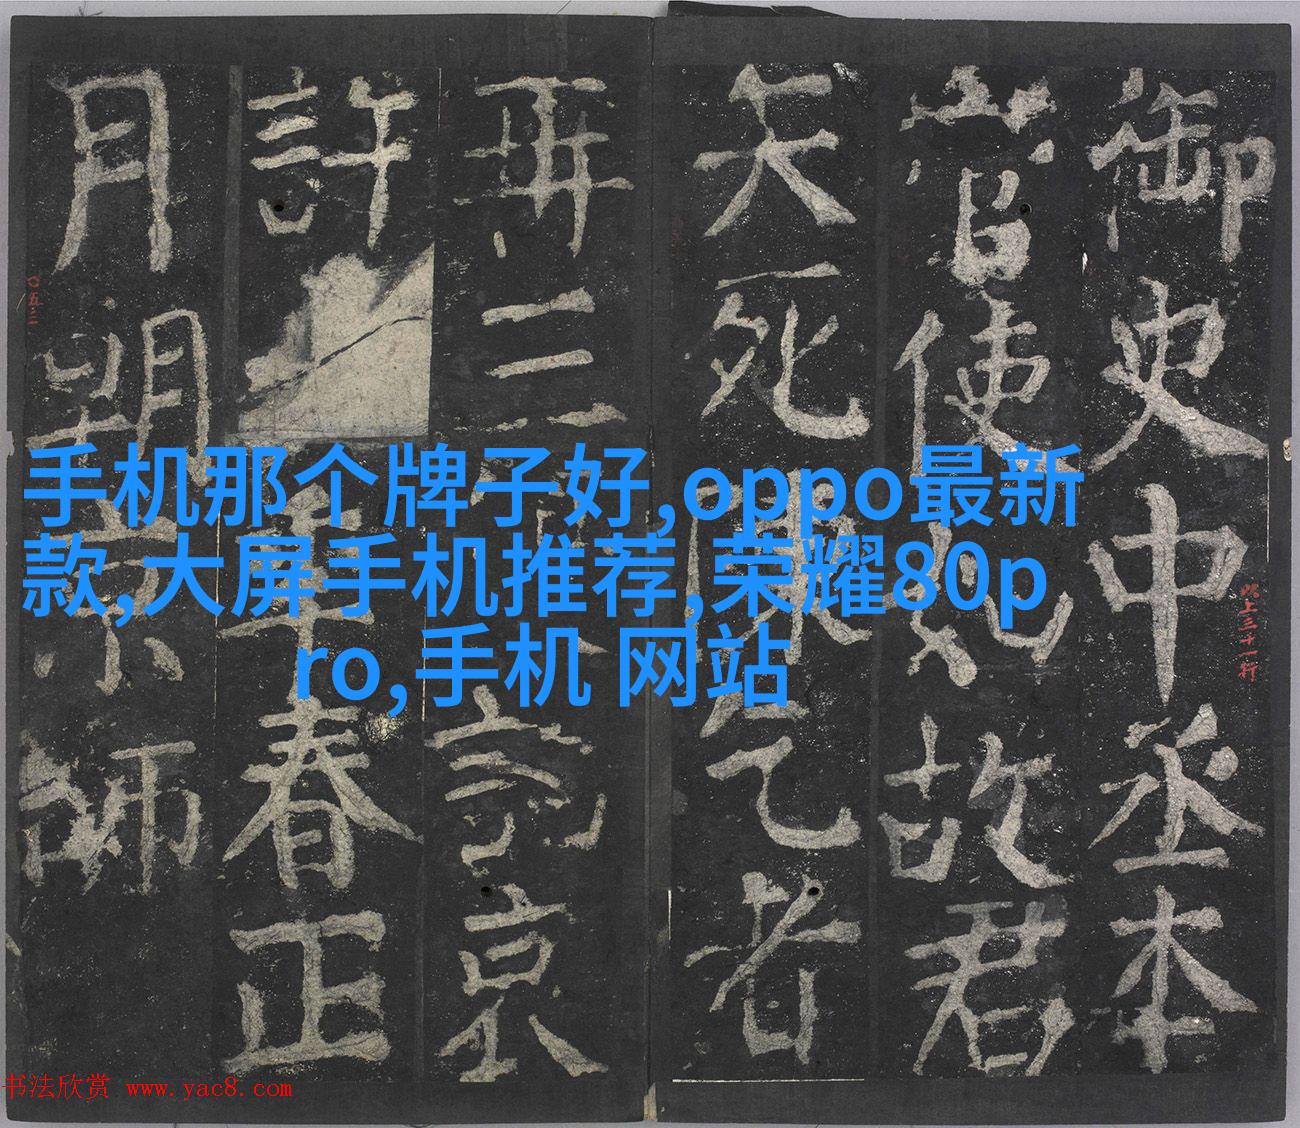 御史中丞本
當使故君
死乞者
再三京
許年春正
月朔京師
以上三十一行
〇五三
手机那个牌子好,oppo最新
款,大屏手机推荐,荣耀80p
ro,手机 网站
书法欣赏 www.yac8.com